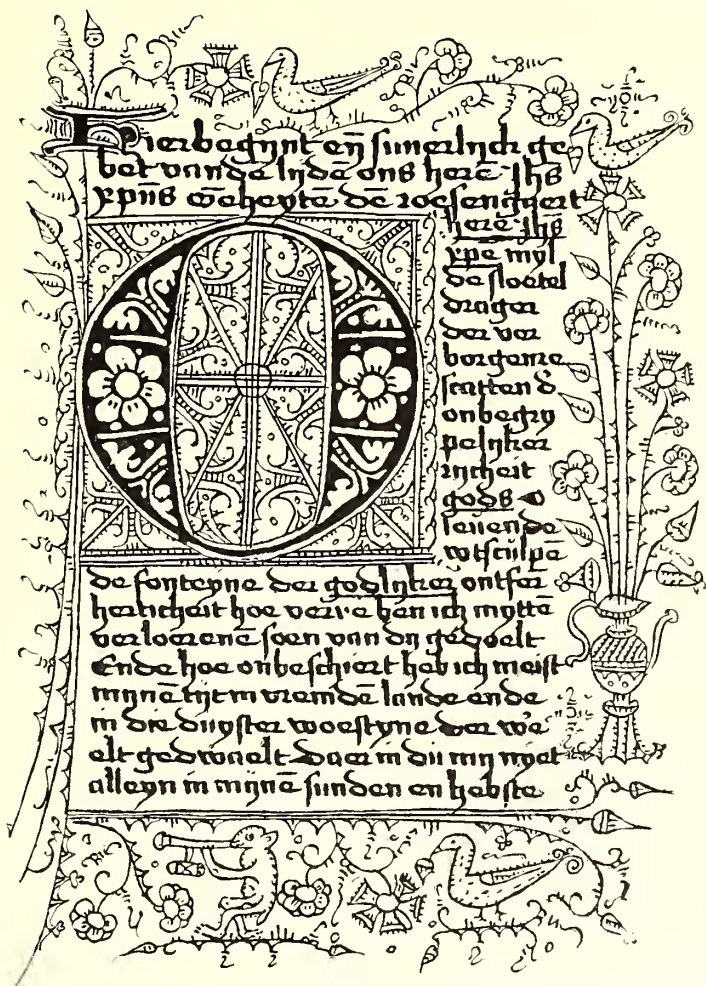 Hierbegynt eȳ suuerlyck ge
bet vandē lydē ons herē Jhs̄
xpn̄s Geheytē dē roesengaert
O herē Jhs̄
xpe myl
de sloetel
drager
der ver
borgenre
scatten d̄
onbegry
pelyker
rycheit
gods O
leuende
wtsculpē
de fonteyne der godlyker ontfer
herticheit hoe verre ben ich myttē
verloerenē soen van dy gedoelt
Ende hoe onbeschiert heb ich meist
mynē tijt in vremdē lande ende
in die duyster woestyne der we
elt gedwaelt daer in du my nyet
alleyn in mynē sunden en hebste